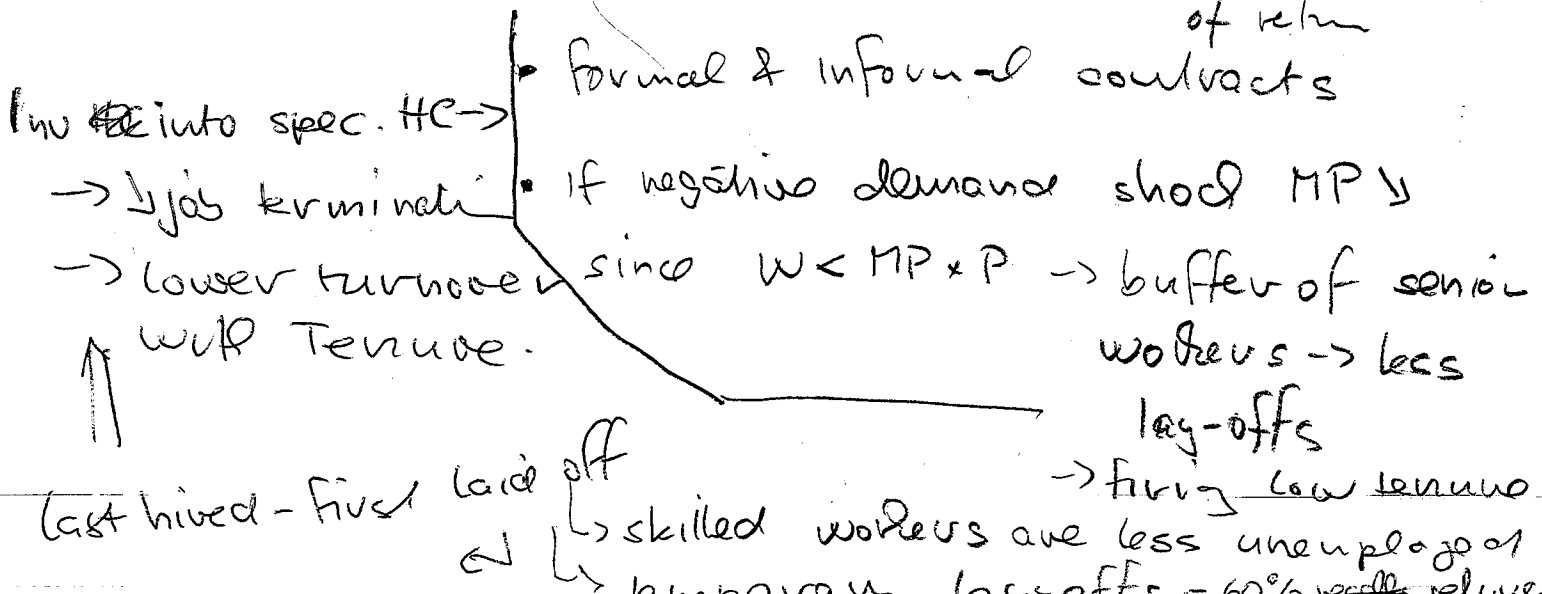 of return
• formal & informal contracts
Inv into spec. HC →
→ ↘ job terminati
• If negative demand shock MP ↘
→ lower turnover
since W < MP × P → buffer of senior
with Tenure.
workers → less
lay-offs
→ firing low tenure
last hired - first laid off
↳ skilled workers are less unemployed
↳ temporary lay-offs - 60% recalls